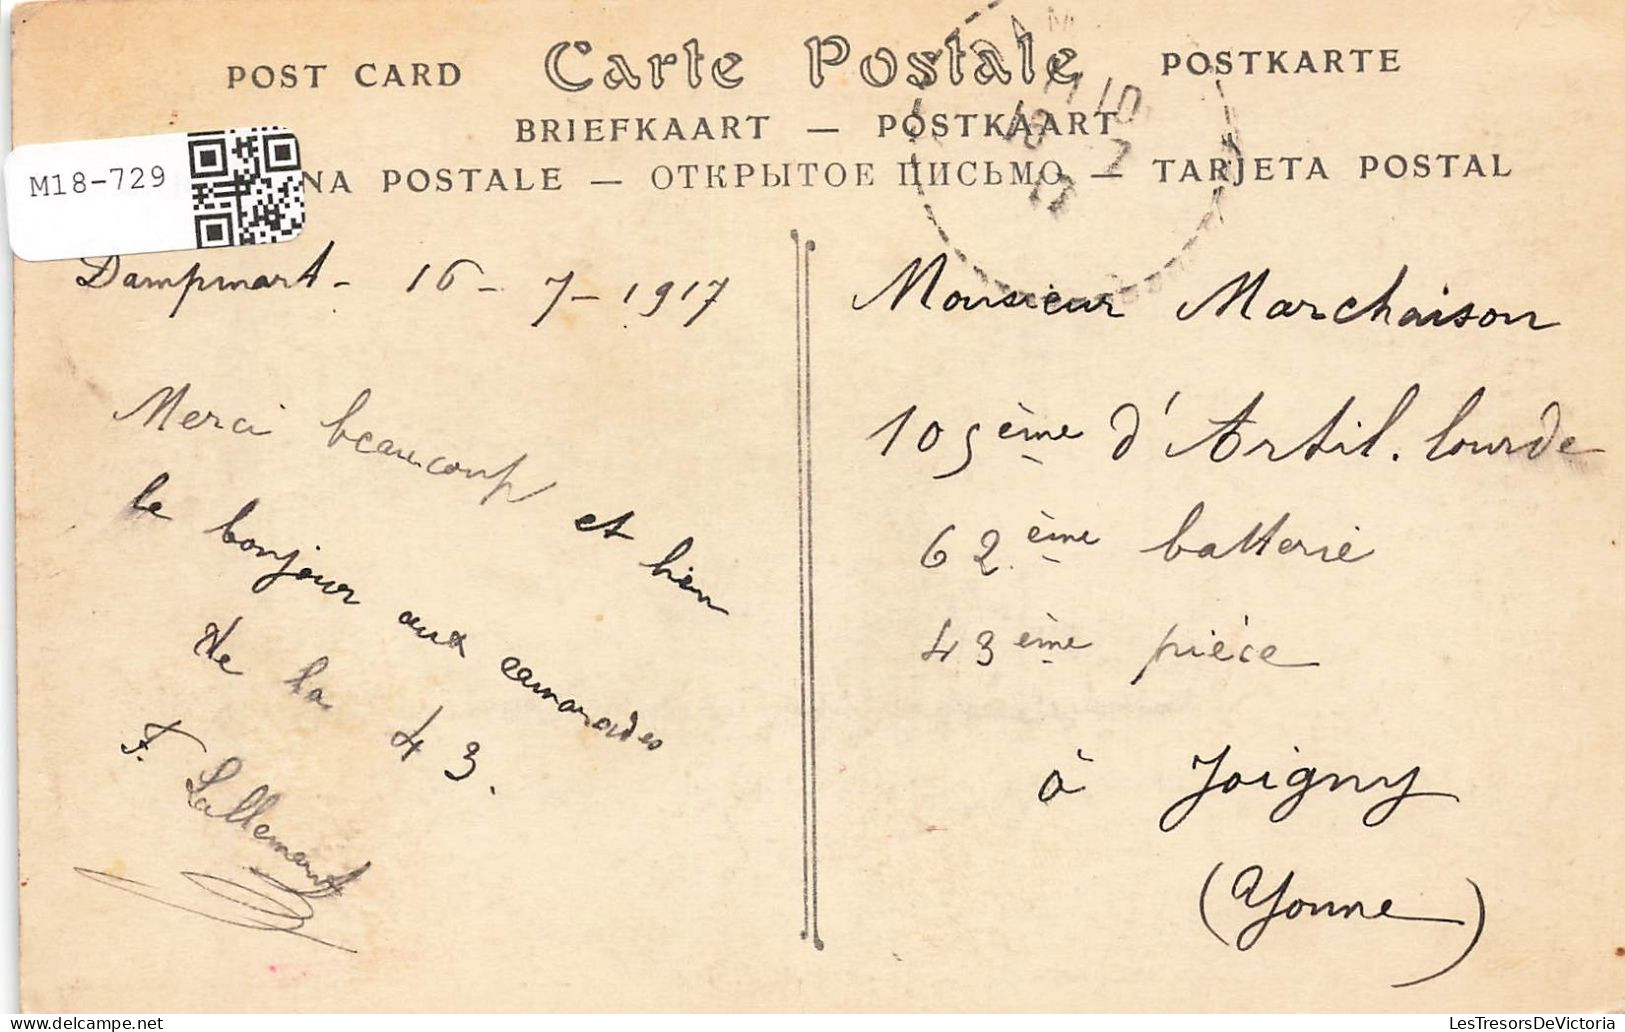 POST CARD Carte Postale POSTKARTE
BRIEFKAART — POSTKAART
NA POSTALE — ОТКРЫТОЕ ПИСЬМО — TARJETA POSTAL
M18-729
Dampmart - 16 - 7 - 1917
Merci beaucoup et bien
le bonjour aux camarades
de la 43.
F. Lallemant
Monsieur Marchaison
105ème d'Artil. lourde
62ème batterie
43ème pièce
à Joigny
(Yonne)
delcampe.net
LesTresorsDeVictoria